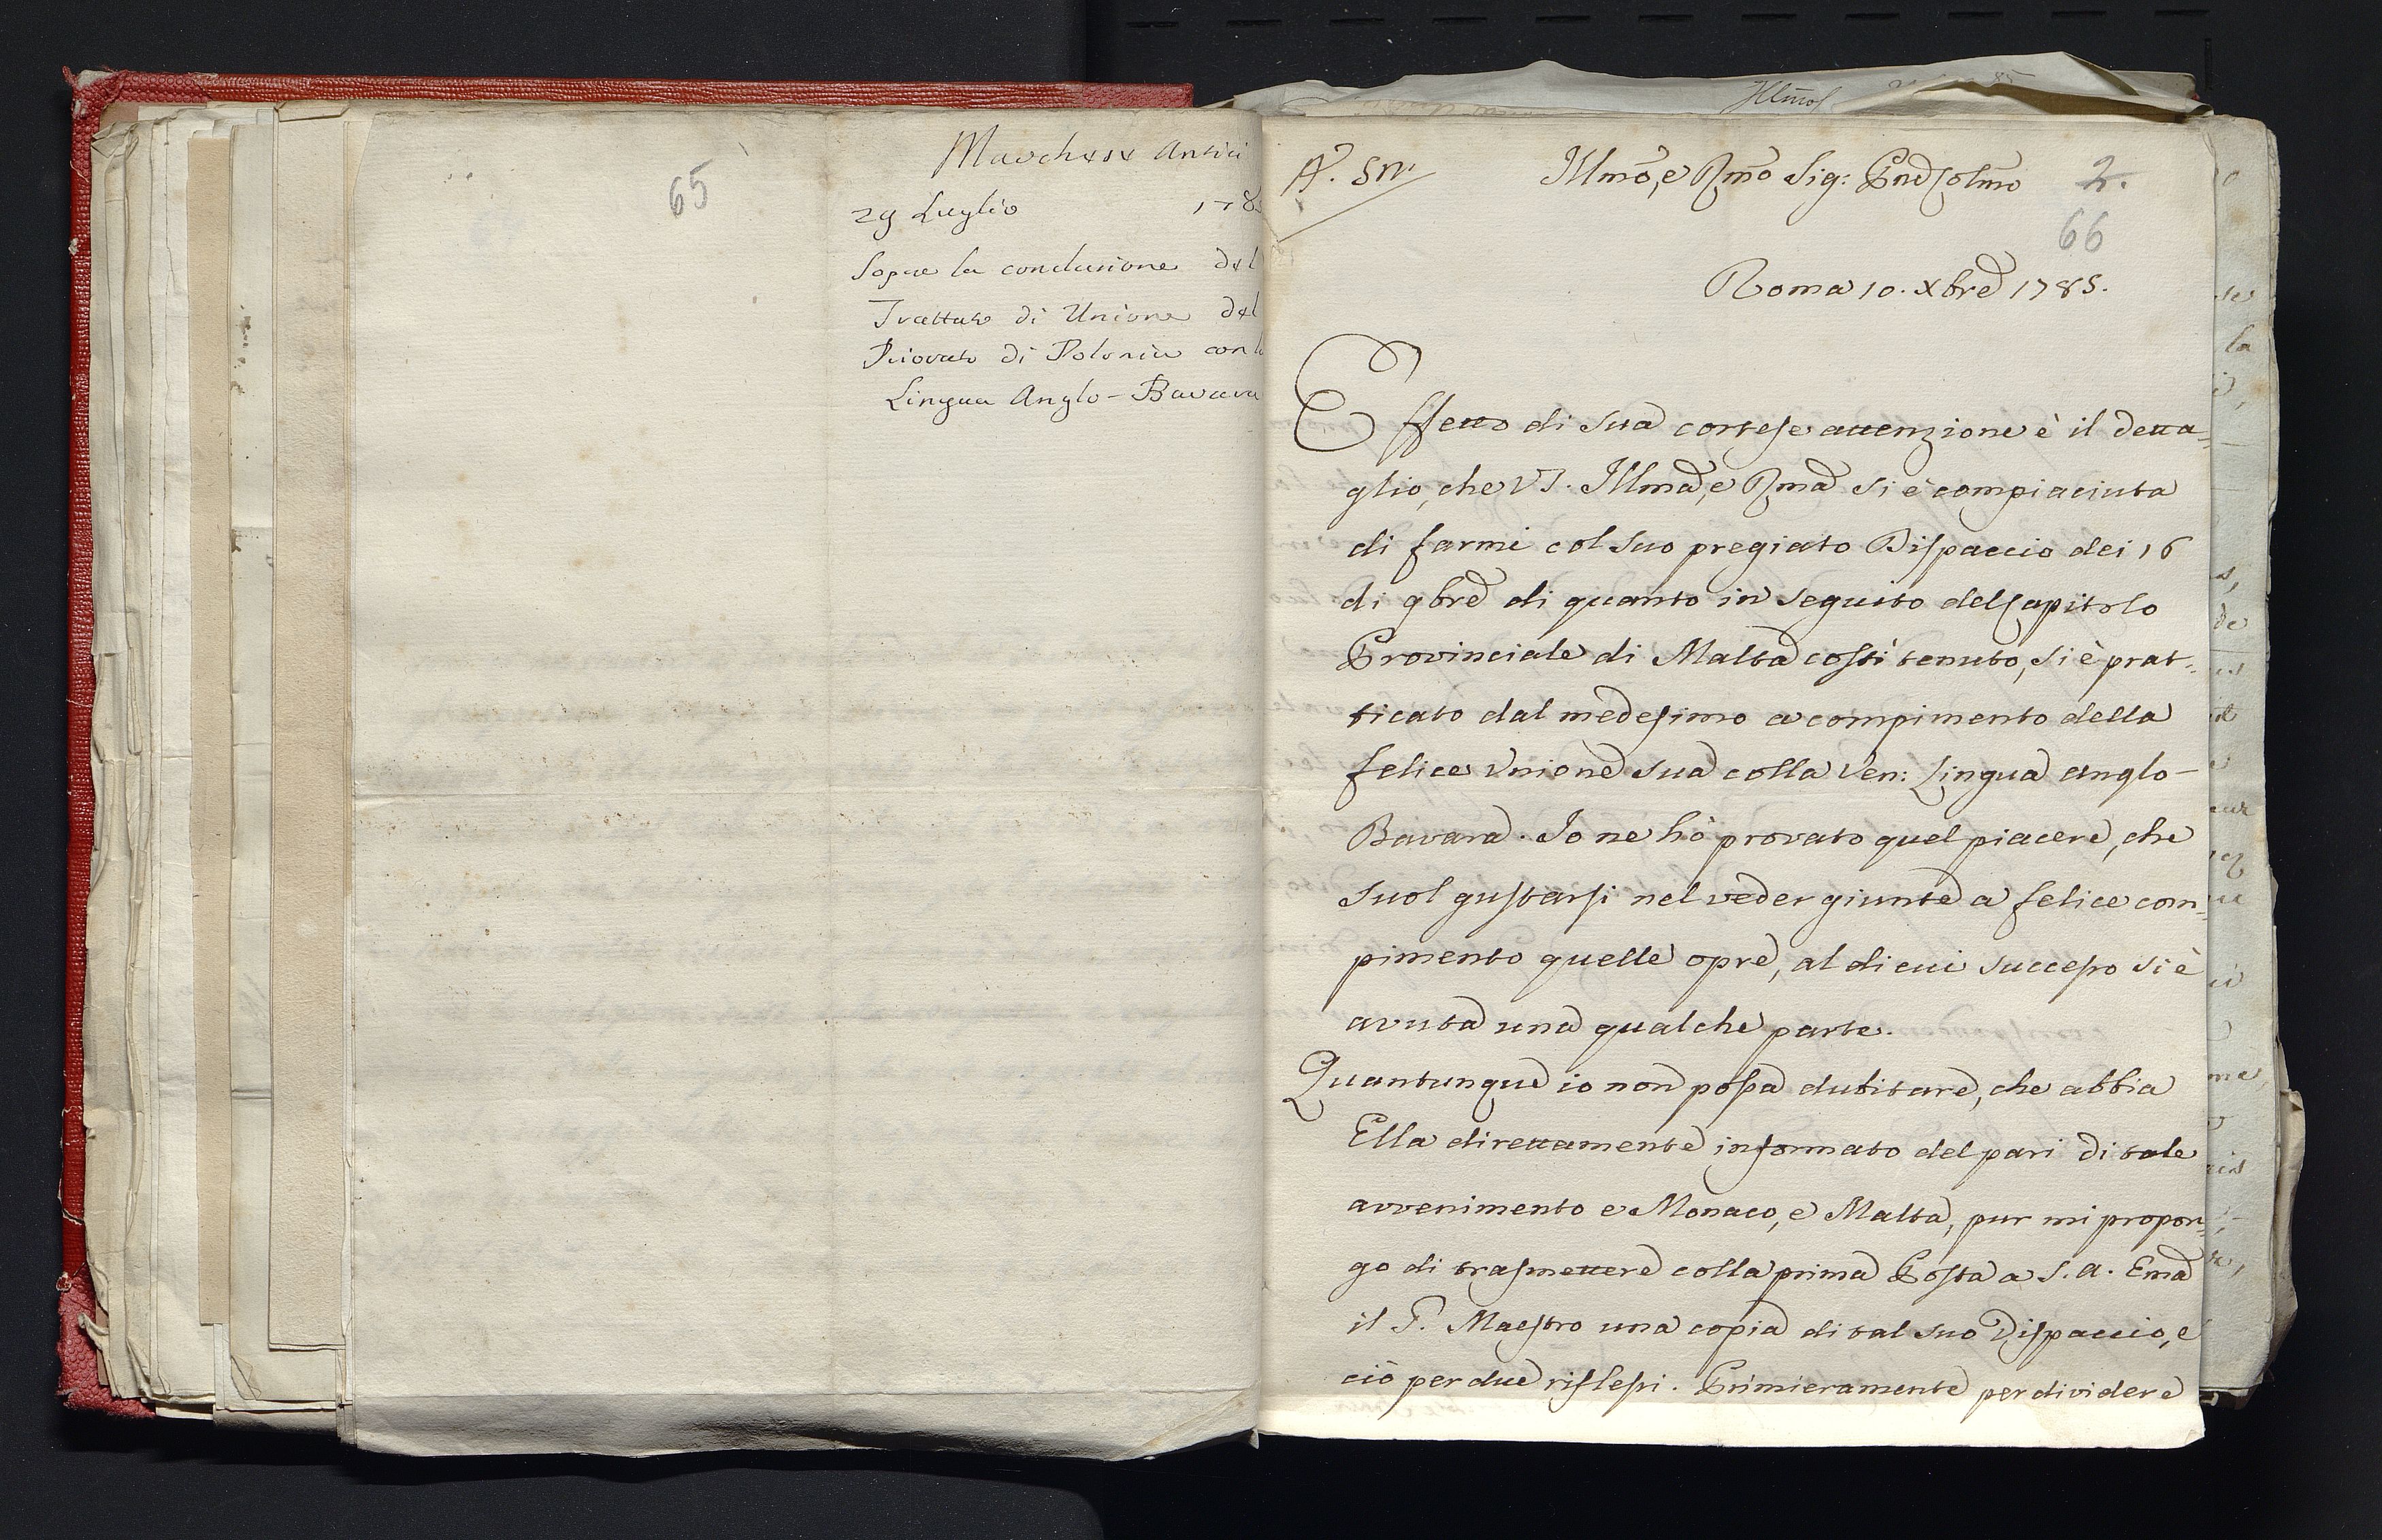 65
Marchese Antici
29 Luglio 178
Sopra la conclusione del
Trattato di Unione del
Priorato di Polonia con l
Lingua Anglo-Bavara
Illmo, e Rmo Sig: Pne Colmo 2.
66
Roma 10. Xbre 1785.
Effetto di sua cortese attenzione è il detta-
glio, che VS. Illma, e Rma si è compiaciuta
di farmi col suo pregiato Dispaccio dei 16
di 9bre di quanto in seguito del Capitolo
Provinciale di Malta costì tenuto, si è prat-
ticato dal medesimo a compimento della
felice Unione sua colla Ven: Lingua anglo-
Bavara. Io ne hò provato quel piacere, che
suol gustarsi nel veder giunte a felice com-
pimento quelle opre, al di cui successo si è
avuta una qualche parte.
Quantunque io non possa dubitare, che abbia
Ella direttamente informato del pari di tale
avvenimento e Monaco, e Malta, pur mi propon-
go di trasmettere colla prima Posta a S. A. Ema
il G. Maestro una copia di tal suo Dispaccio, e
ciò per due riflessi. Primieramente per dividere